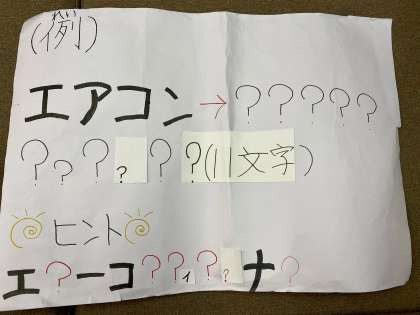 (例れい)
エアコン→?????
??????(11文字)
ヒント
エ?ーコ??ィ??ナ?